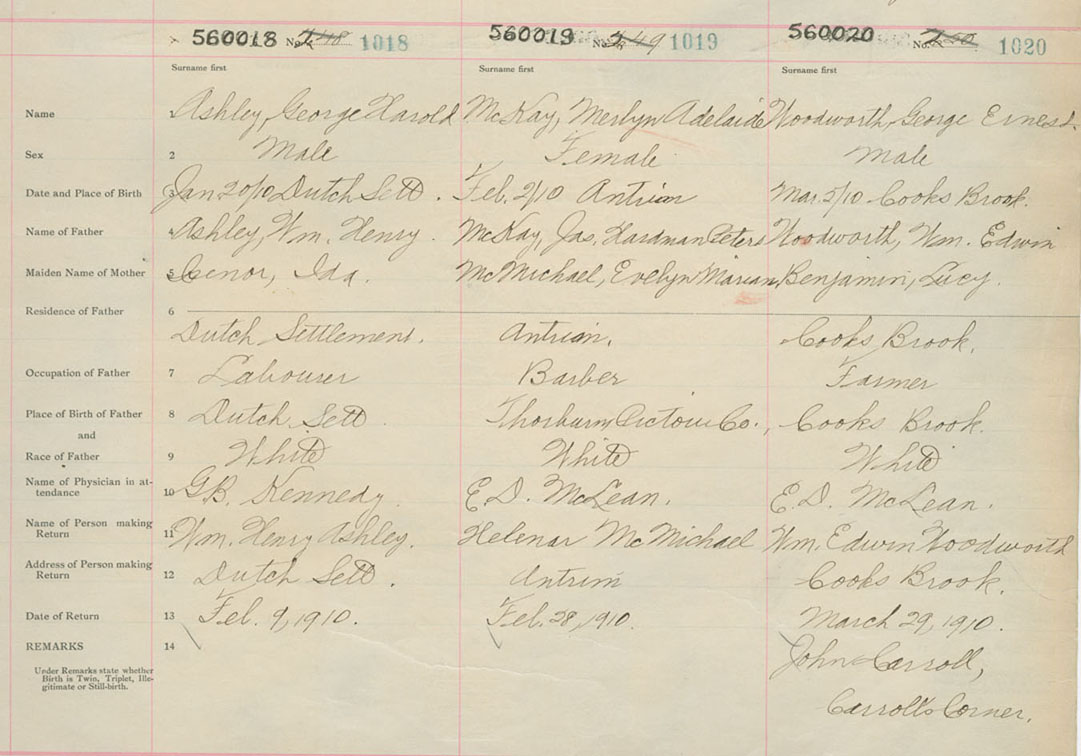 560018 No. 1018 560019 No. 1019 560020 No. 1020
Surname first Surname first Surname first
Name Ashley, George Harold McKay, Merlyn Adelaide Woodworth, George Ernest.
Sex 2 Male Female Male
Date and Place of Birth 3 Jan. 20/10 Dutch Sett. Feb. 2/10 Antrim Mar. 5/10 Cooks Brook.
Name of Father 4 Ashley, Wm. Henry. McKay, Jas. Hardman Peters Woodworth, Wm. Edwin
Maiden Name of Mother 5 Ida. McMichael, Evelyn Marian, Benjamin, Lucy.
Residence of Father 6
Dutch Settlement. Antrim. Cooks Brook.
Occupation of Father 7 Labourer Barber Farmer
Place of Birth of Father 8 Dutch Sett. Thorburn, Pictou Co., Cooks Brook.
and
Race of Father 9 White White White
Name of Physician in at-
tendance 10 G.B. Kennedy. E.D. McLean. E.D. McLean.
Name of Person making
Return 11 Wm. Henry Ashley. Helenar McMichael Wm. Edwin Woodworth
Address of Person making
Return 12 Dutch Sett. Antrim Cooks Brook.
Date of Return 13 Feb. 9, 1910. Feb. 28, 1910. March 29, 1910.
REMARKS 14 John Carroll,
Under Remarks state whether
Birth is Twin, Triplet, Ille-
gitimate or Still-birth.
Carroll's Corner.